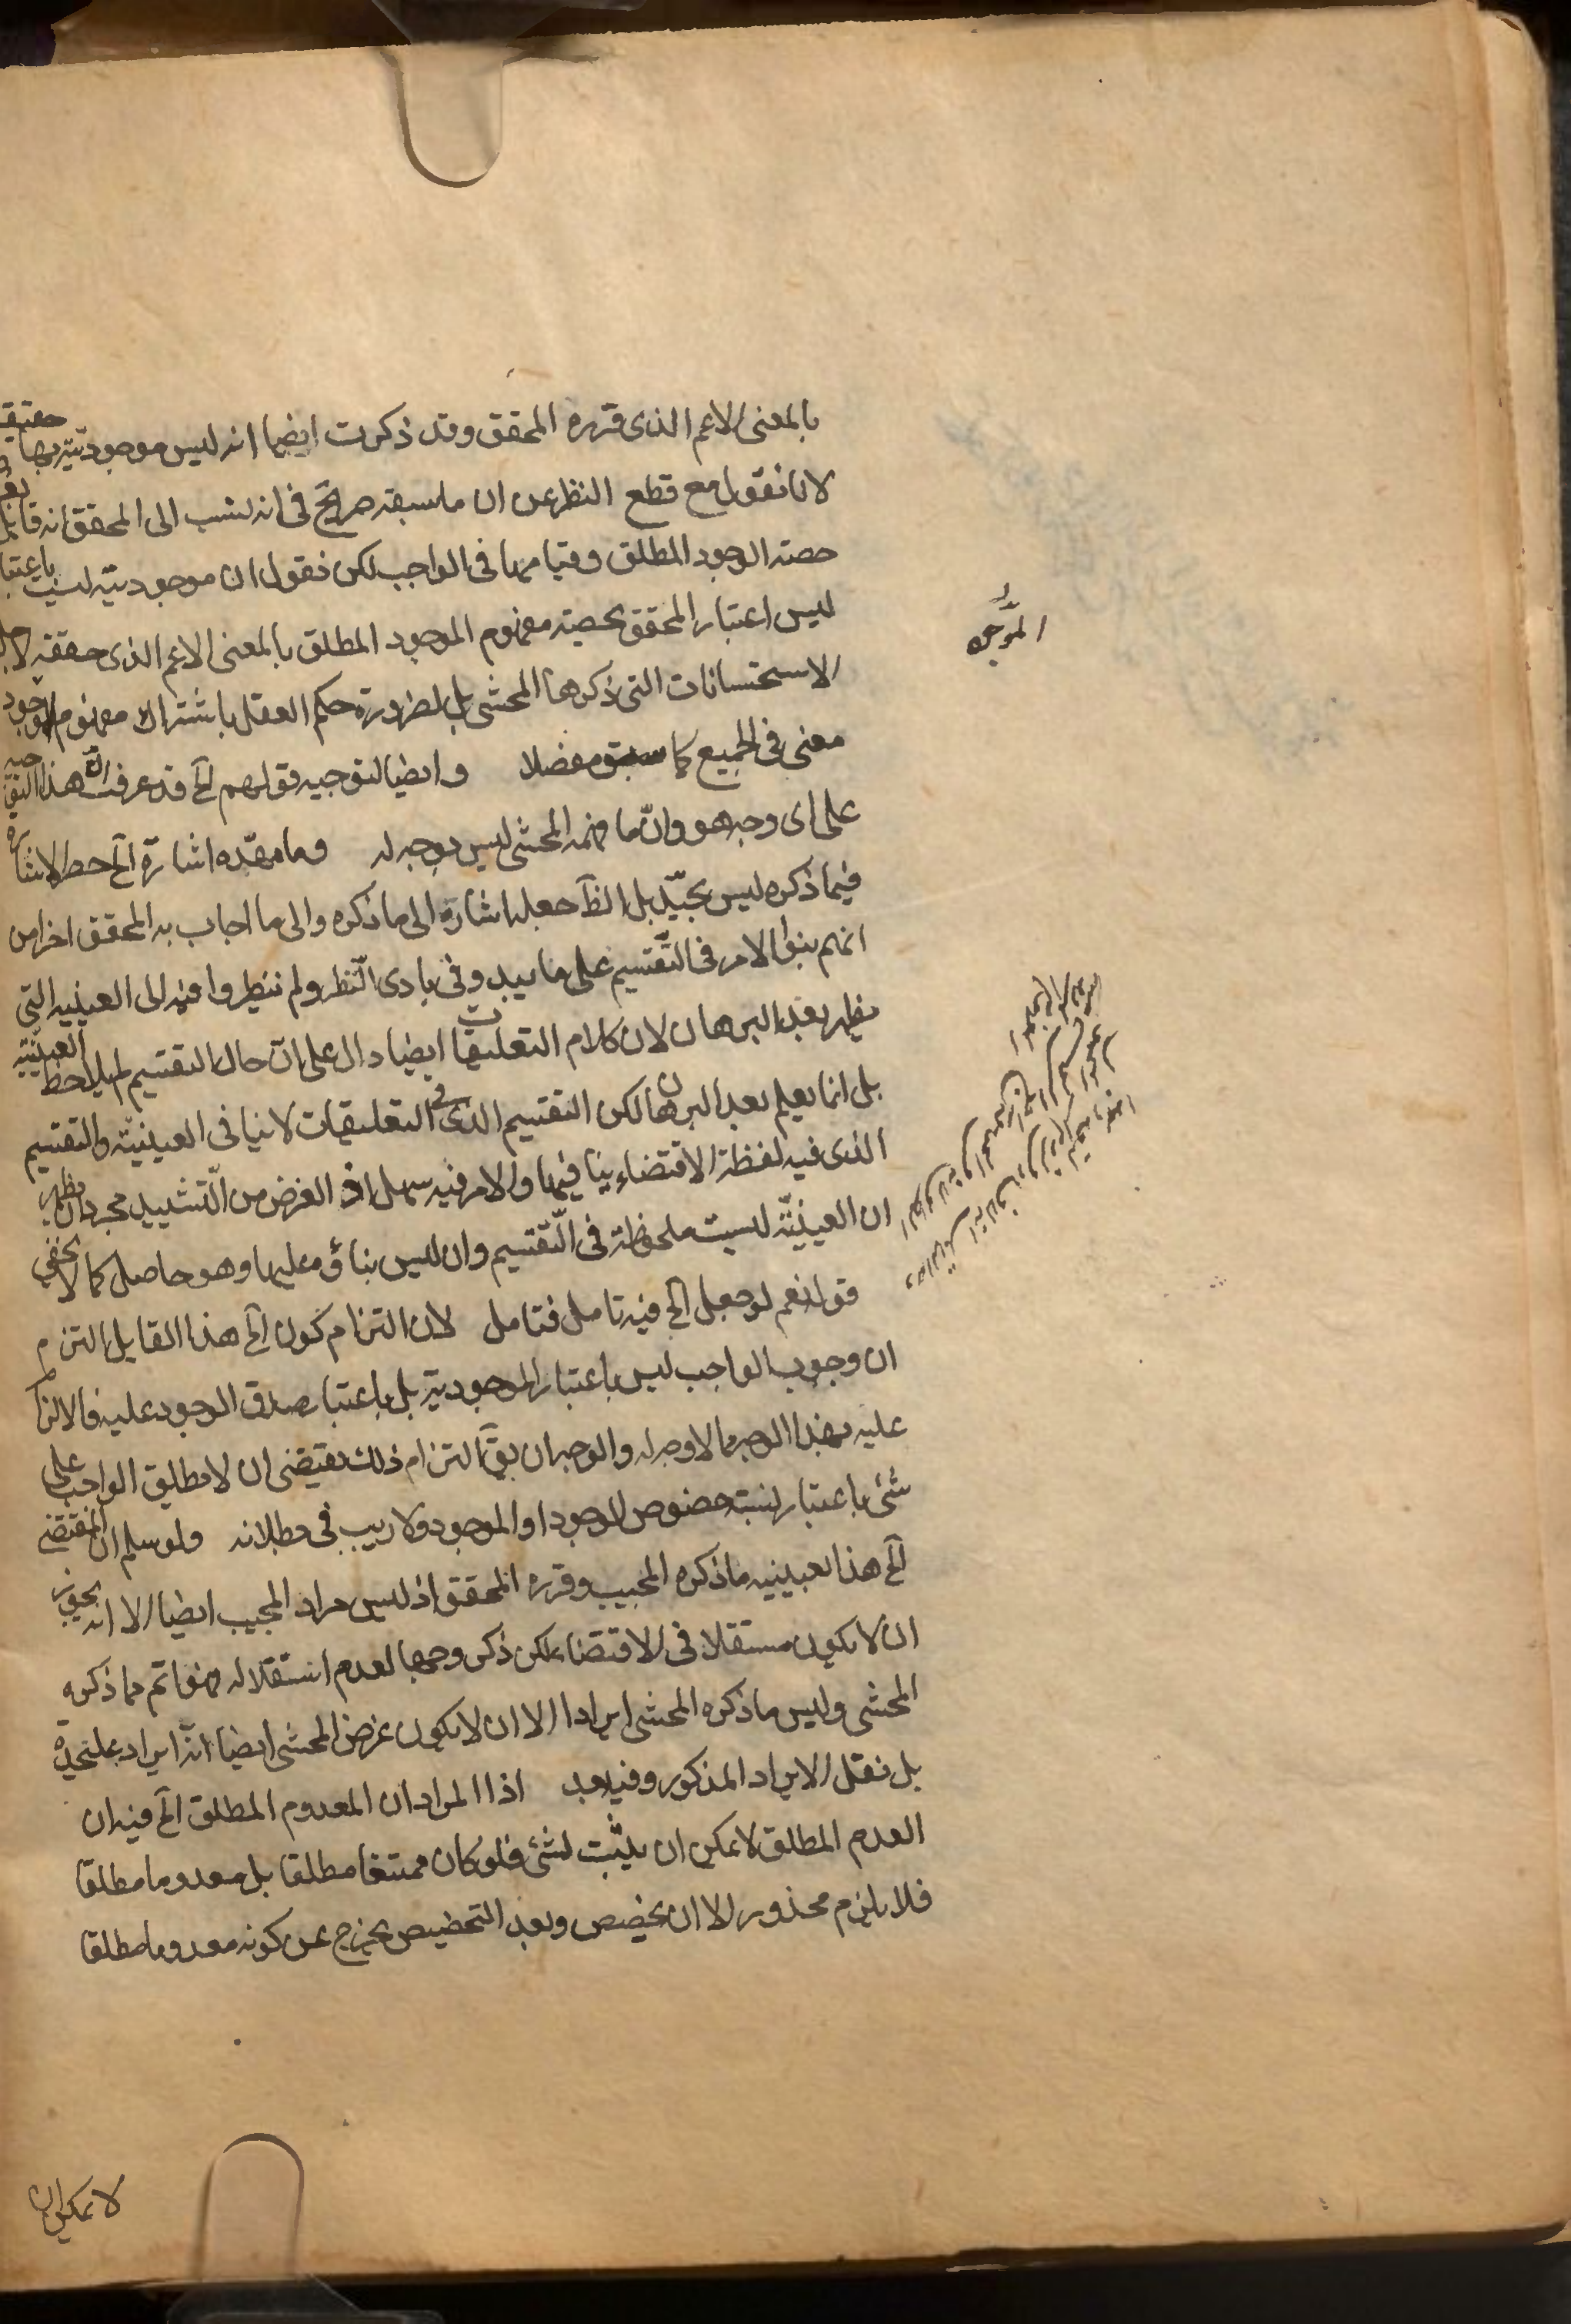 بالمعنى الاعم الذى قرره المحقق وقد ذكرت ايضا انه ليس موجوديته بها حقيقة
لانا نقول مع قطع النظر عن ان ما سبقه صريح فى انه نسب الى المحقق انه قايل
حصته الوجود المطلق وقيامها فى الواجب لكن نقول ان موجوديته ليست باعتبا
ليس اعتبار المحقق بحصته مفهوم الموجود المطلق بالمعنى الاعم الذى حققه لاجل
الاستحسانات التى ذكرها المحشى بل لضرورة حكم العقل باشتراك مفهوم الوجود
معنى فى الجميع كما سبق مفصلا وايضا لتوجيه قولهم الخ قد عرفت ان هذا التوجيه
على اى وجه هو وان ما فهمه المحشى ليس بوجه له وما مهّده اشارة الخ حط الاشارة
فيما ذكره ليس بجيّد بل الظ جعله اشارة الى ما ذكره والى ما اجاب به المحقق اخرا من
انهم بنوا الامر فى التقسيم على ما يبدو فى بادى النظر ولم ينظروا فيه الى العينيه التى
يظهر بعد البرهان لان كلام التعليقات ايضا دال على ان حال التقسيم لم يلاحظ العينيّه
بل انما يعلم بعد البرهان لكن التقسيم الذى فى التعليقات لا ينافى العينيّة والتقسيم
الذى فيه لفظة الاقتضاء ينافيها والامر فيه سهل اذ الغرض من التشييد مجرد ان يظهر
ان العينيّة ليست ملحوظة فى التقسيم وان ليس بناؤه عليها وهو حاصل كما لا يخفى
قوله نعم لو جعل الخ فيه تامل فتامل لان التزام كون الخ هذا القايل التزم
ان وجوب الواجب ليس باعتبار الموجودية بل باعتبار صدق الوجود عليه فالالزام
عليه بهذا الوجه مما لا وجه له والوجه ان يق التزام ذلك يقتضى ان لا يطلق الواجب على
شئ باعتبار نسبته خصوص الوجود او الموجود ولا ريب فى بطلانه ولو سلم ان المقتضى
الخ هذا بعينيه ما ذكره المجيب وقرره المحقق اذ ليس مراد المجيب ايضا الا انه يجوز
ان لا يكون مستقلا فى الاقتضاء لكن ذكر وجها لعدم استقلاله فهو اتم مما ذكره
المحشى وليس ما ذكره المحشى ايرادا الا ان لا يكون غرض المحشى ايضا انه ايراد عليحدة
بل نقل الايراد المذكور وفيه بعد اذ المراد ان المعدوم المطلق الخ فيه ان
العدم المطلق لا يمكن ان يثبت لشئ فلو كان ممتنعا مطلقا بل معدوما مطلقا
فلا يلزم محذور الا ان يخصص وبعد التخصيص يخرج عن كونه معدوما مطلقا
لا يمكن ان
الموجه